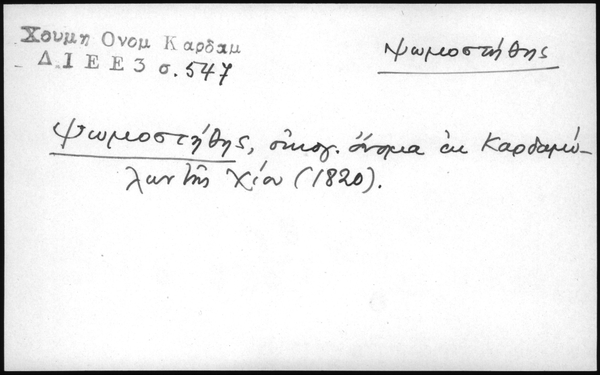 Χουμη Ονομ Καρδαμ
Δ.Ι Ε Ε 3 σ. 547
Ψωμοστήθης
Ψωμοστήθης, οἰκογ. ὄνομα ἐκ Καρδαμύ-
λων τῆς Χίου (1820).